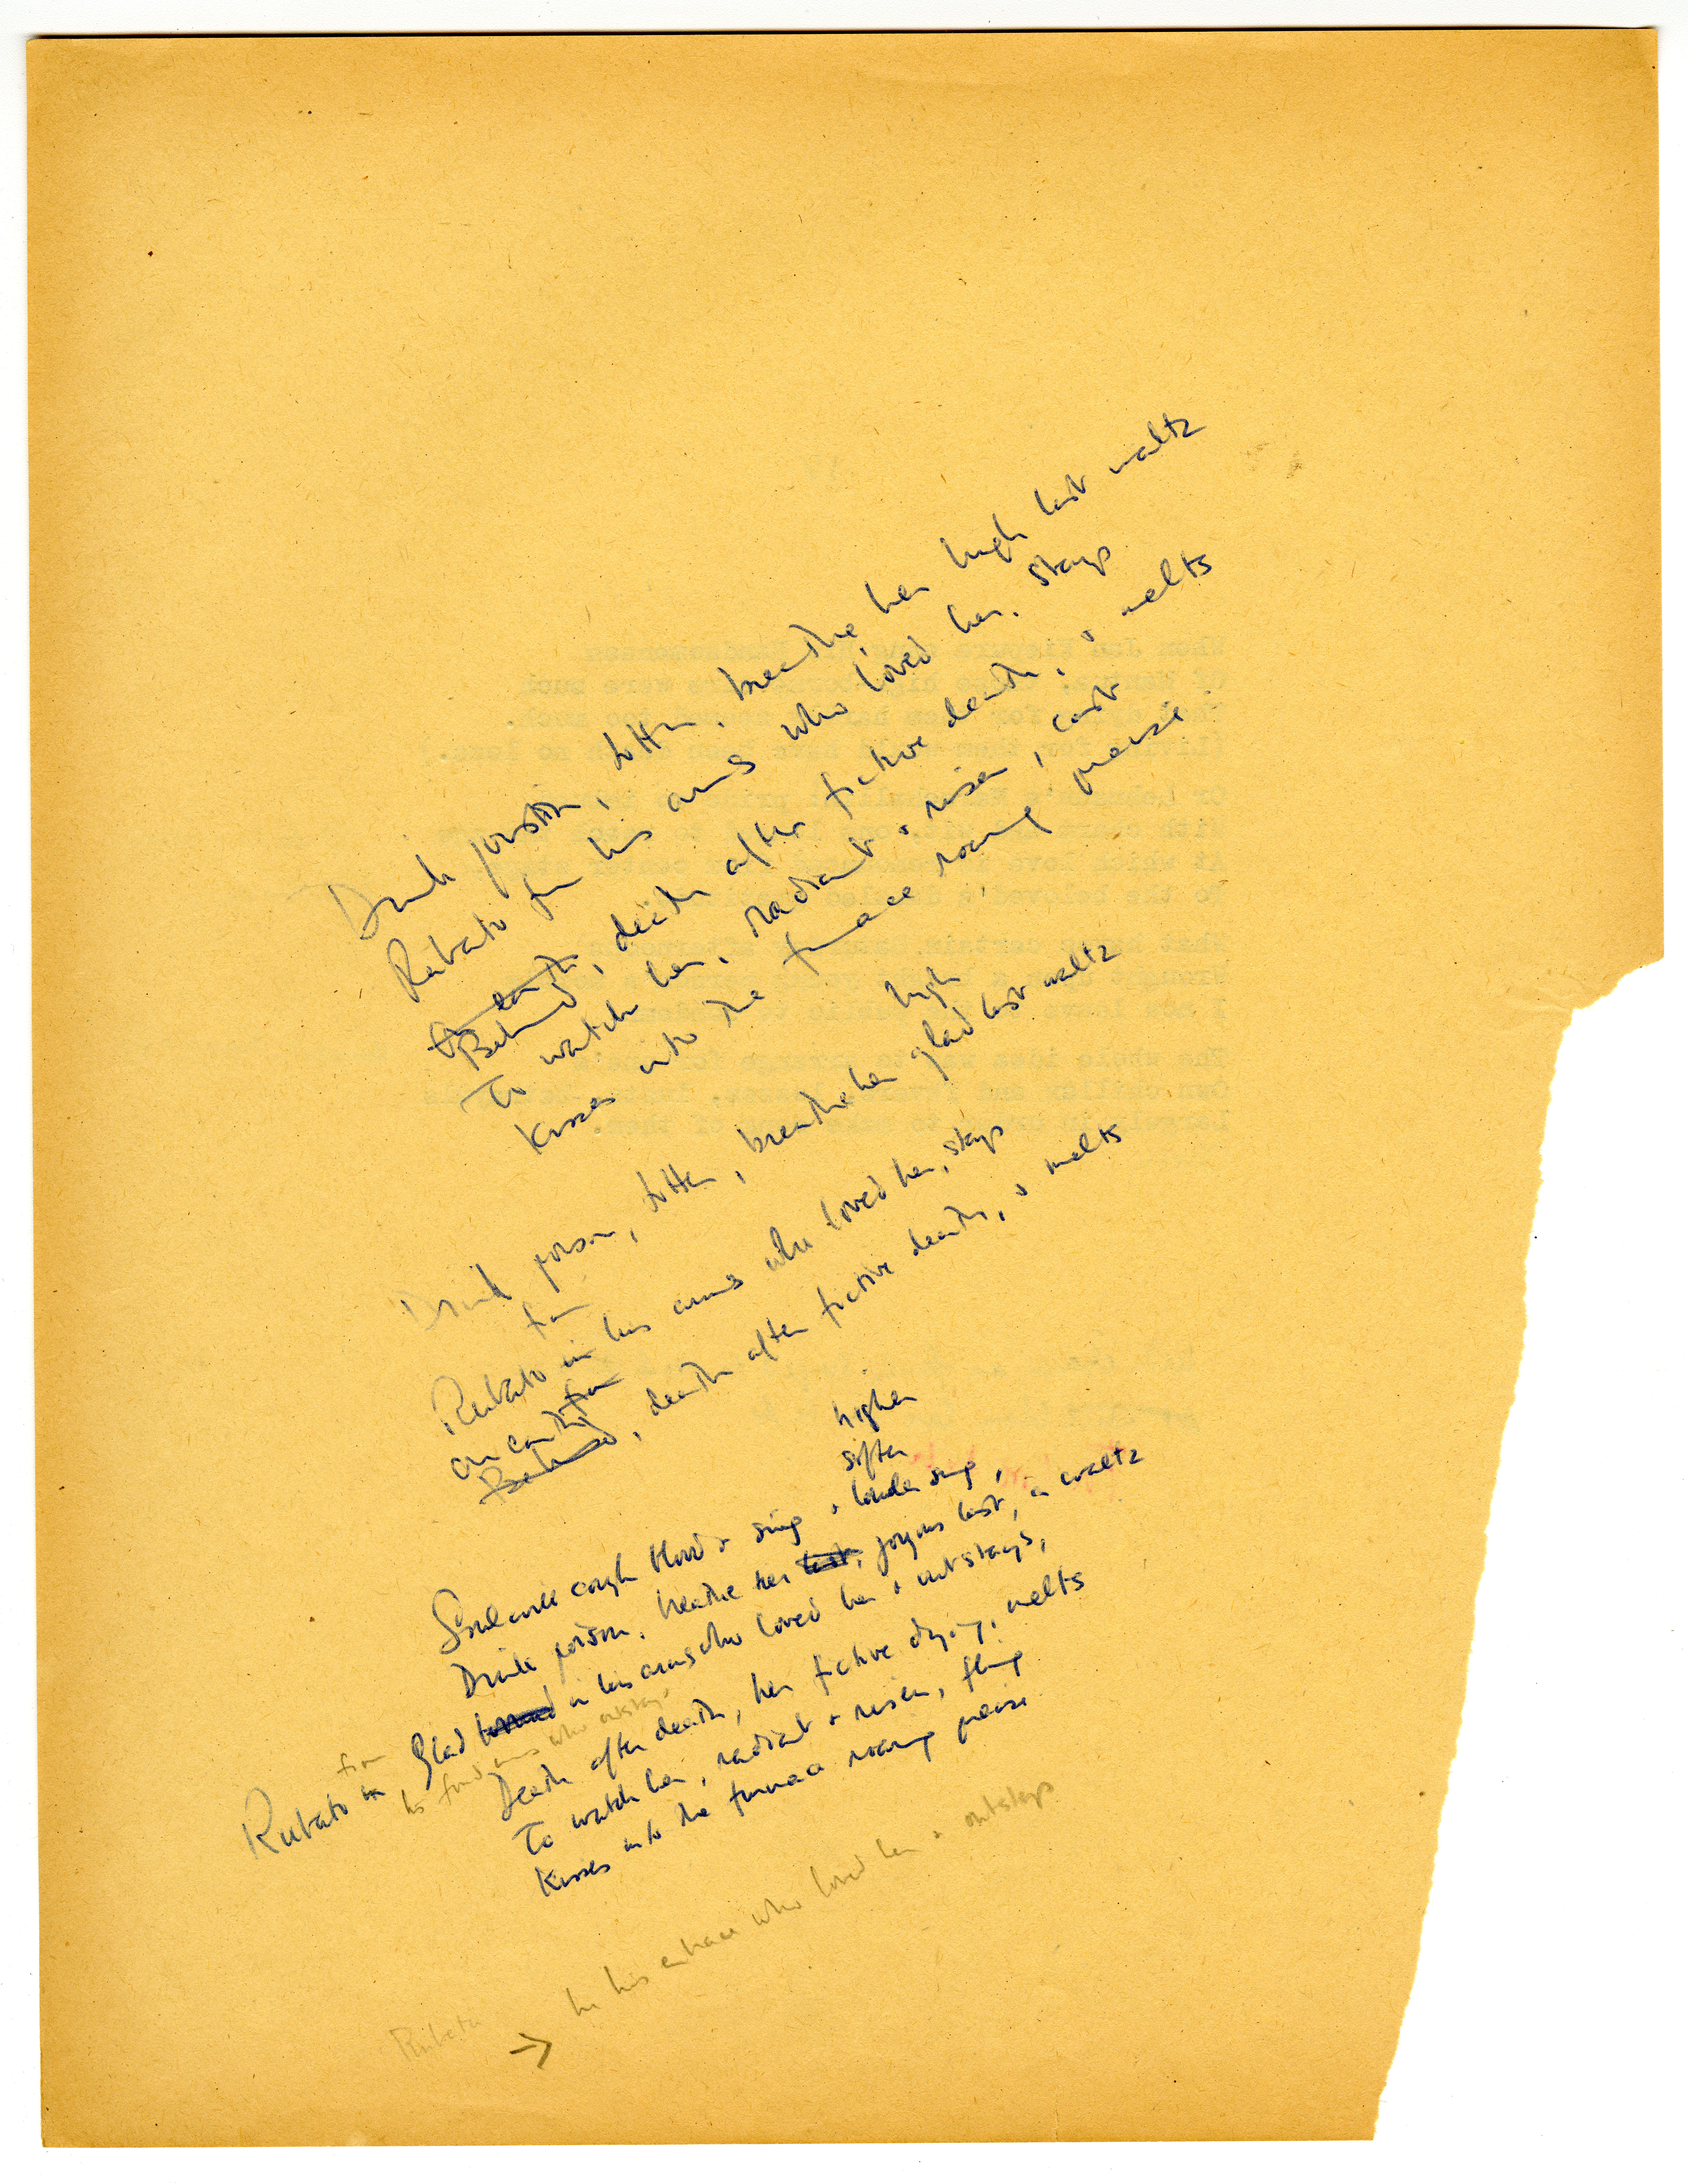 Drink poison, totter, breathe her high last waltz
Rubato from his arms who loved her, stays
On earth
Behind, death after fictive death, & melts
To watch her, radiant & risen, cast
Kisses into the furnace roaring praise
high
Drink poison, totter, breathe her glad last waltz
from
Rubato in his arms who loved her, stays
on earth for
Behind, death after fictive death, & melts
higher
softer
Someone cough blood & sing & louder sing,
Drink poison, breathe her last, joyous last, a waltz
Glad in his arms who loved her & outstays,
from
Rubato in his fond arms who outstays
Death after death, her fictive dying, melts
To watch her, radiant & risen, fling
Kisses into the furnace roaring praise
Rubato → in his embrace who loved her & outstays